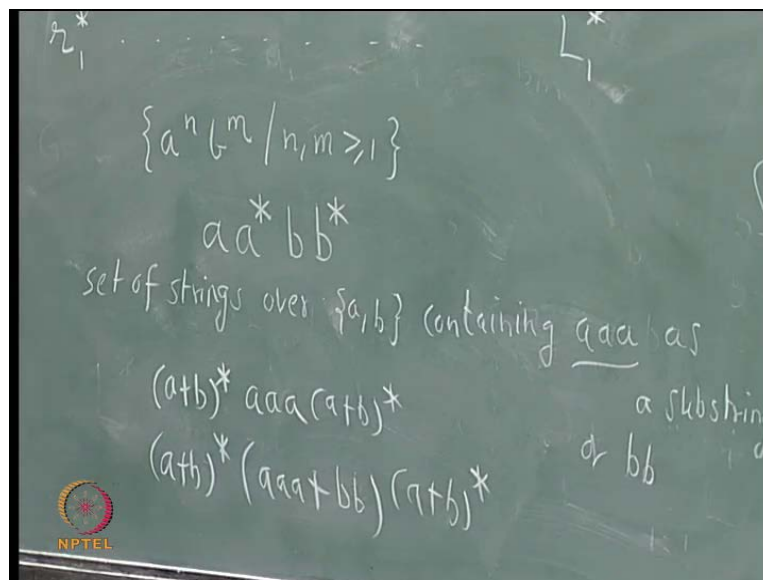 r₁* . . . . . . . . . . L₁*
{aⁿ bᵐ / n, m ≥ 1}
aa* bb*
set of strings over {a, b} containing aaa as
a substrin
(a+b)* aaa (a+b)*
or bb
(a+b)* (aaa + bb) (a+b)*
NPTEL